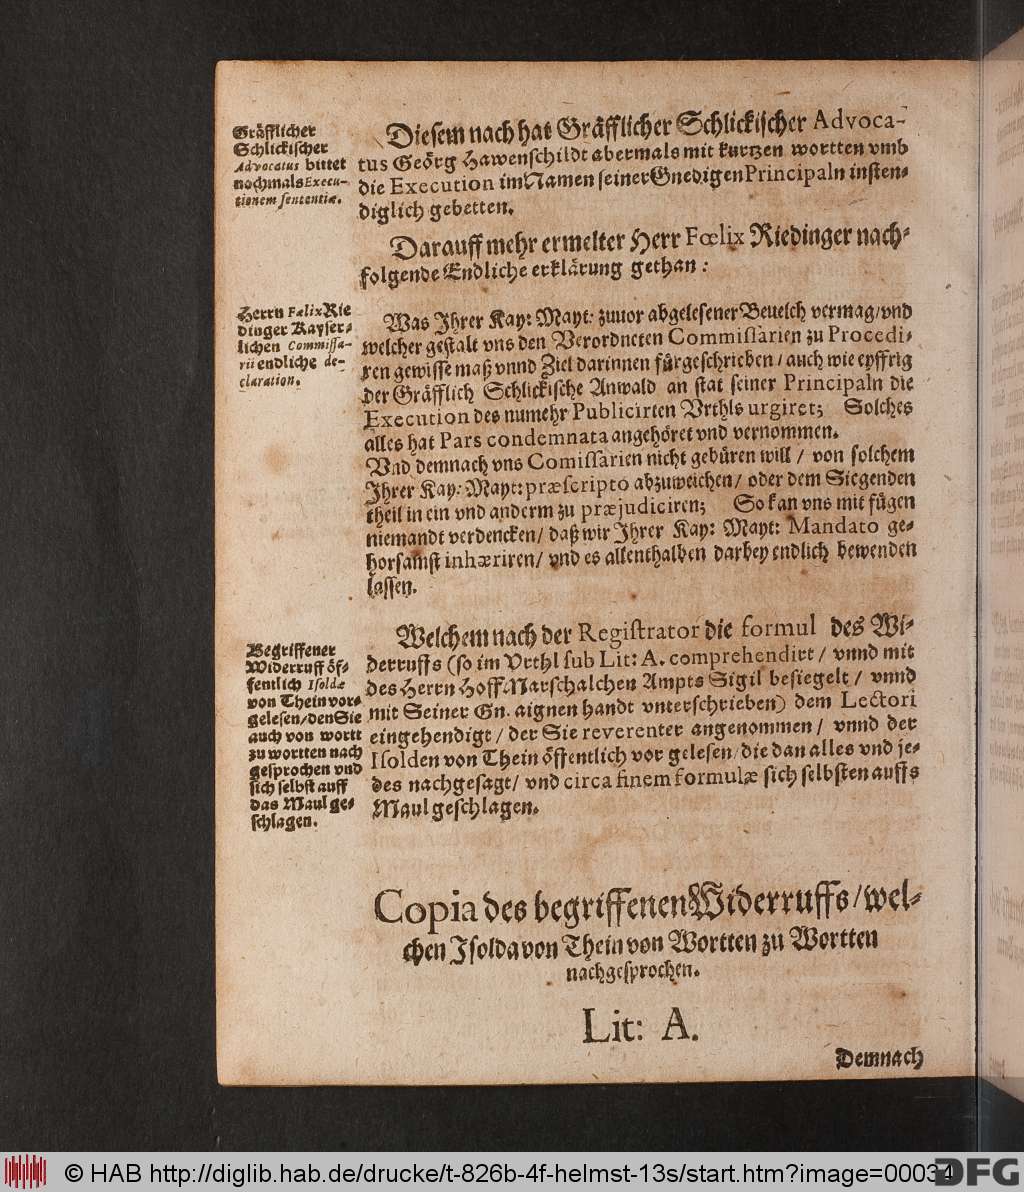 Gräfflicher
Schlickischer
Advocatus bittet
nochmals Execu-
tionem sententiæ.
Diesem nach hat Gräfflicher Schlickischer Advoca-
tus Geörg Hawenschildt abermals mit kurtzen wortten vmb
die Execution im Namen seiner Gnedigen Principaln insten-
diglich gebetten.
Darauff mehr ermelter Herr Fœlix Riedinger nach-
folgende Endliche erklärung gethan:
Herrn Fœlix Rie
dinger Kayser-
lichen Commissa-
rii endliche de-
claration.
Was Ihrer Kay: Mayt: zuuor abgelesener Beuelch vermag/ vnd
welcher gestalt vns den Verordneten Commissarien zu Procedi-
ren gewisse maß vnnd Ziel darinnen fürgeschrieben/ auch wie eyffrig
der Gräfflich Schlickische Anwald an stat seiner Principaln die
Execution des numehr Publicirten Vrthls urgiret; Solches
alles hat Pars condemnata angehöret vnd vernommen.
Vnd demnach vns Comissarien nicht gebüren will/ von solchem
Ihrer Kay: Mayt: præscripto abzuweichen/ oder dem Siegenden
theil in ein vnd anderm zu præjudiciren; So kan vns mit fügen
niemandt verdencken/ daß wir Ihrer Kay: Mayt: Mandato ge-
horsamst inhæriren/ vnd es allenthalben darbey endlich bewenden
lassen.
Begriffener
Widerruff öf-
fentlich Isoldæ
von Thein vor-
gelesen/ den Sie
auch von wortt
zu wortten nach
gesprochen vnd
sich selbst auff
das Maul ge-
schlagen.
Welchem nach der Registrator die formul des Wi-
derruffs (so im Vrthl sub Lit: A. comprehendirt/ vnnd mit
des Herrn Hoff Marschalchen Ampts Sigil besiegelt/ vnnd
mit Seiner Gn. aignen handt vnterschrieben) dem Lectori
eingehendigt/ der Sie reverenter angenommen/ vnnd der
Isolden von Thein öffentlich vor gelesen/ die dan alles vnd je-
des nachgesagt/ vnd circa finem formulæ sich selbsten auffs
Maul geschlagen.
Copia des begriffenen Widerruffs/ wel-
chen Isolda von Thein von Wortten zu Wortten
nachgesprochen.
Lit: A.
Demnach
© HAB http://diglib.hab.de/drucke/t-826b-4f-helmst-13s/start.htm?image=00034
DFG